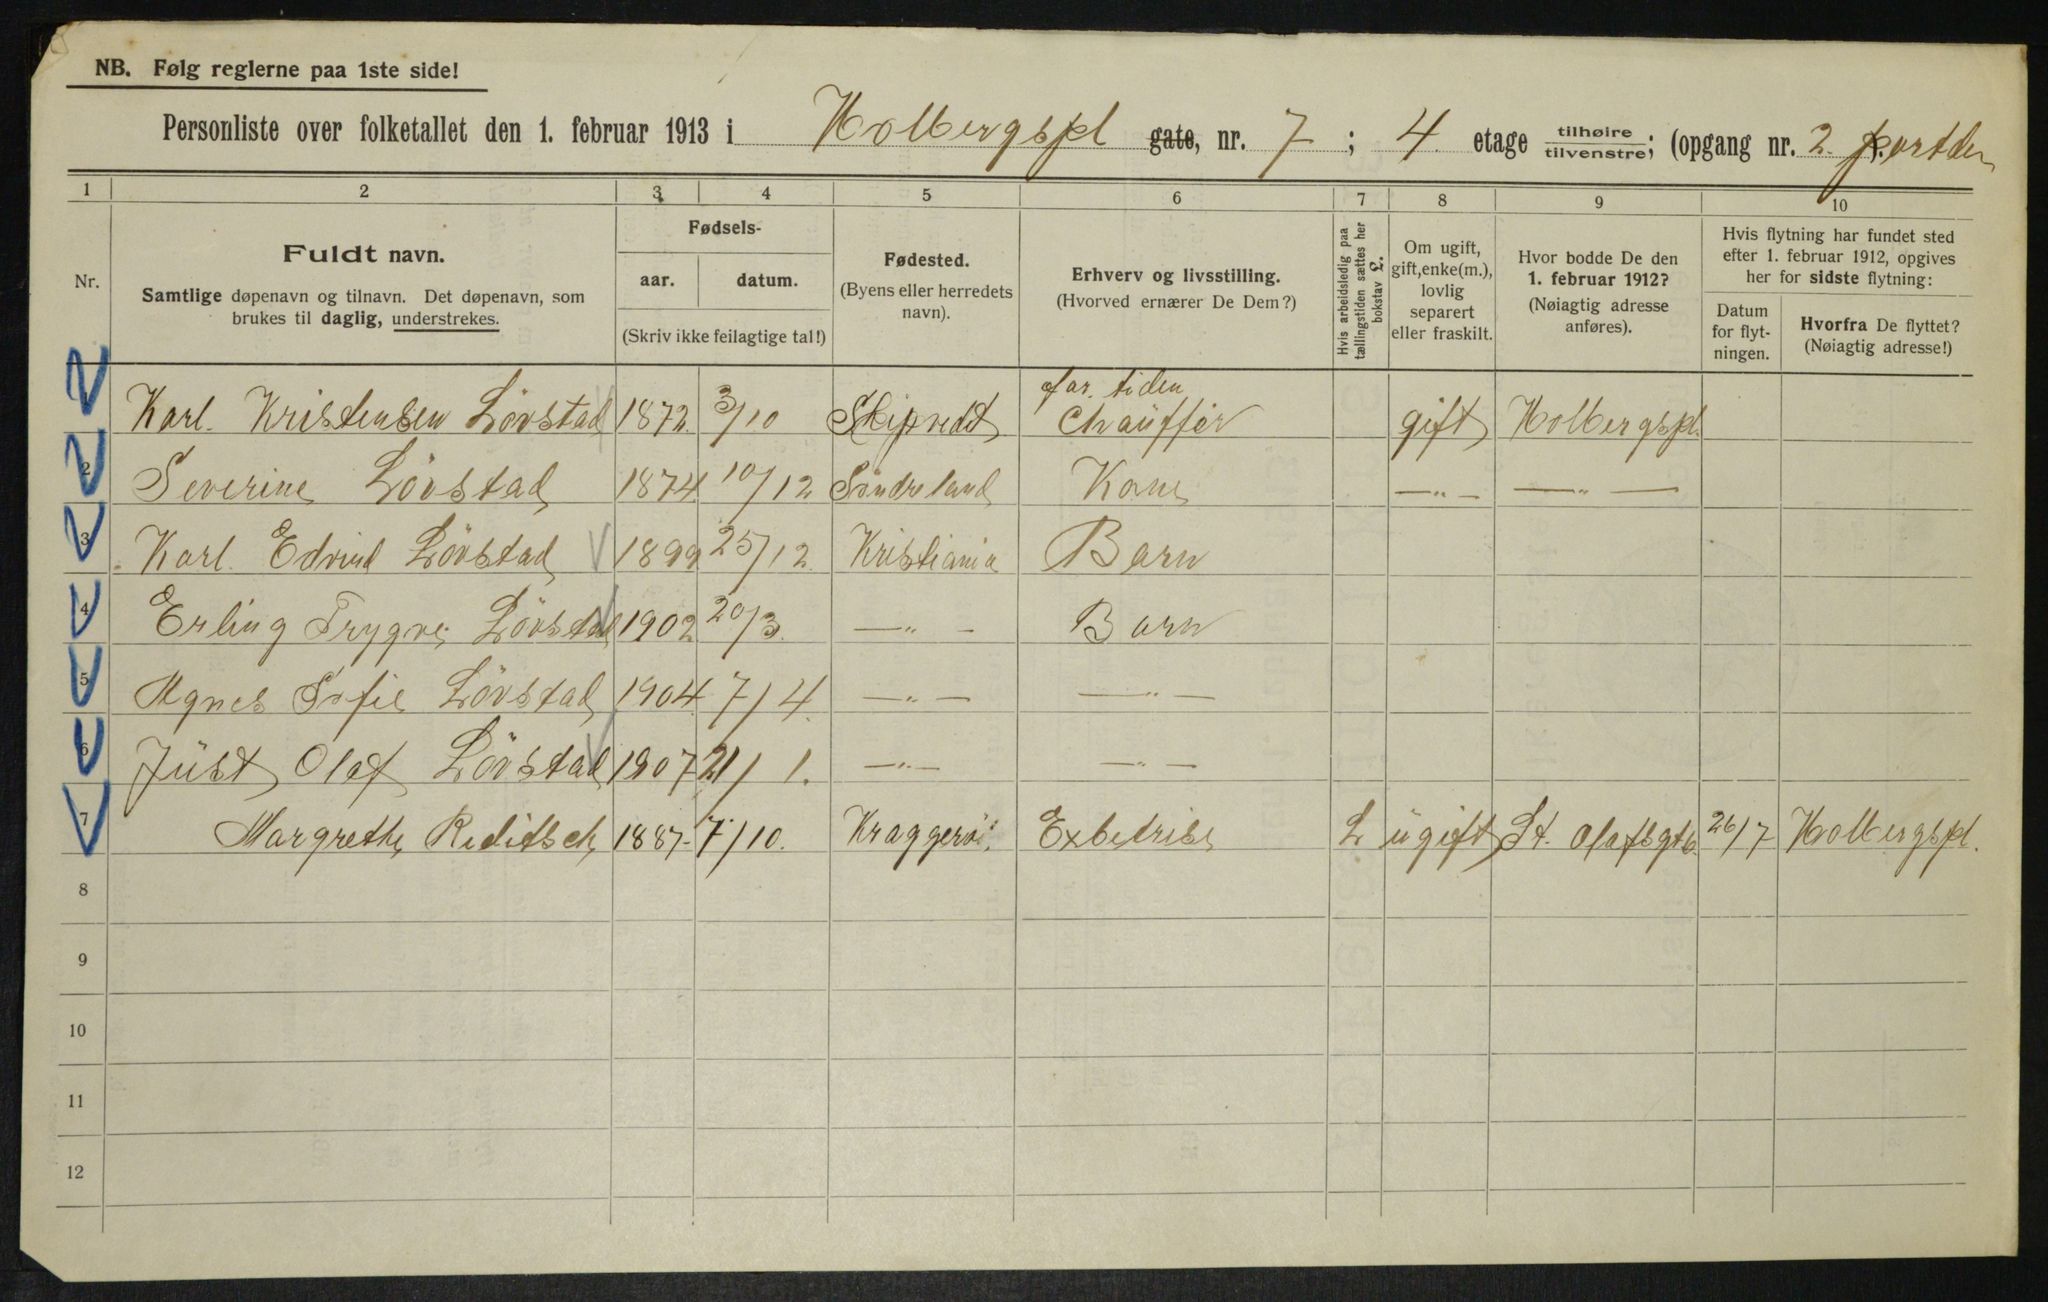 NB. Følg reglerne paa 1ste side!
Personliste over folketallet den 1. februar 1913 i Holbergspl gate, nr. 7 ; 4 etage tilhøire / tilvenstre; (opgang nr. 2. portden
1 2 3 4 5 6 7 8 9 10
Nr.
Fuldt navn.
Samtlige døpenavn og tilnavn. Det døpenavn, som
brukes til daglig, understrekes.
Fødsels-
aar. datum.
(Skriv ikke feilagtige tal!)
Fødested.
(Byens eller herredets
navn).
Erhverv og livsstilling.
(Hvorved ernærer De Dem?)
Hvis arbeidsledig paa
tællingstiden sættes her
bokstav L.
Om ugift,
gift, enke(m.),
lovlig
separert
eller fraskilt.
Hvor bodde De den
1. februar 1912?
(Nøiagtig adresse
anføres).
Hvis flytning har fundet sted
efter 1. februar 1912, opgives
her for sidste flytning:
Datum
for flyt-
ningen.
Hvorfra De flyttet?
(Nøiagtig adresse!)
for. tiden
1 Karl. Kristensen Lövstad 1872. 3/10 Skipvedt Chauffør gift Holbergspl.
2 Severine Lövstad 1874 10/12 Söndreland Kone —„— —„—
3 Karl. Edvind Lövstad 1899 25/12. Kristiania Barn
4 Erling Trygve Lövstad 1902 20/3. —„— Barn
5 Agnes Sofie Lövstad 1904 7/4. —„— —„—
6 Just Olaf Lövstad 1907 21/1. —„— —„—
7 Margrethe Reditsch 1887- 7/10. Kraggerö. Exbetrise L ugift St. Olafsgt 6. 26/7 Holbergspl.
8
9
10
11
12